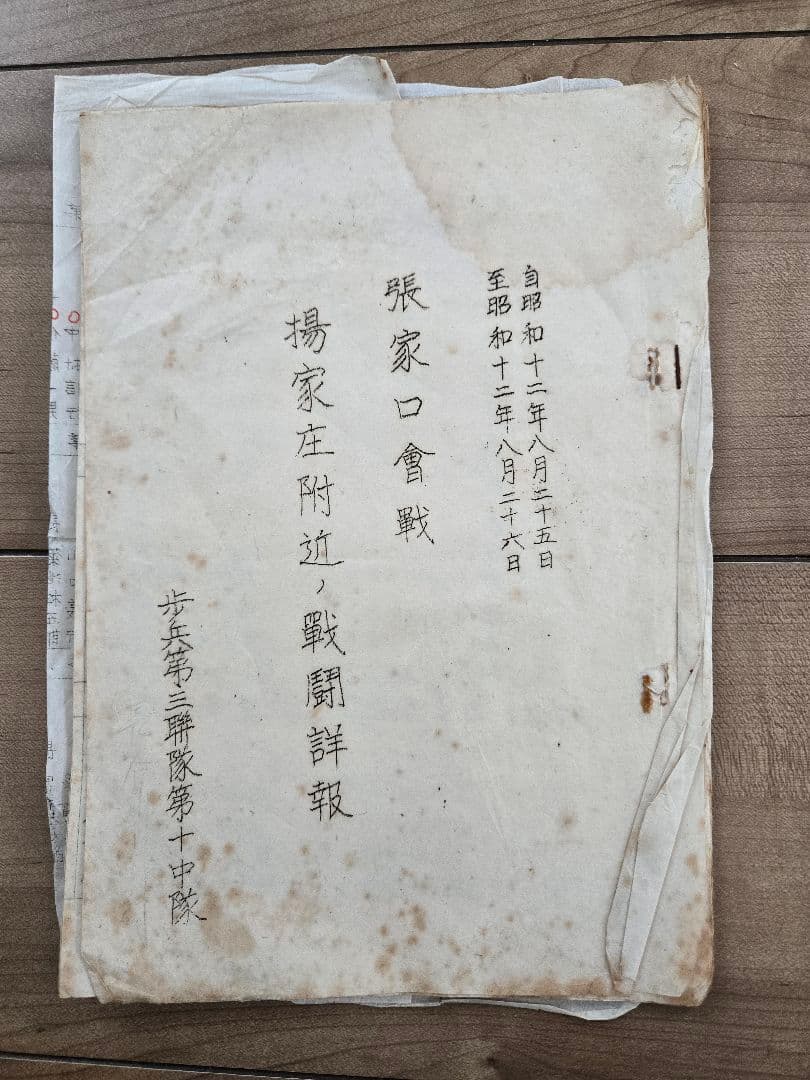 自昭和十二年八月二十五日
至昭和十二年八月二十六日
張家口會戰
揚家庄附近ノ戰鬪詳報
步兵第三聯隊第十中隊